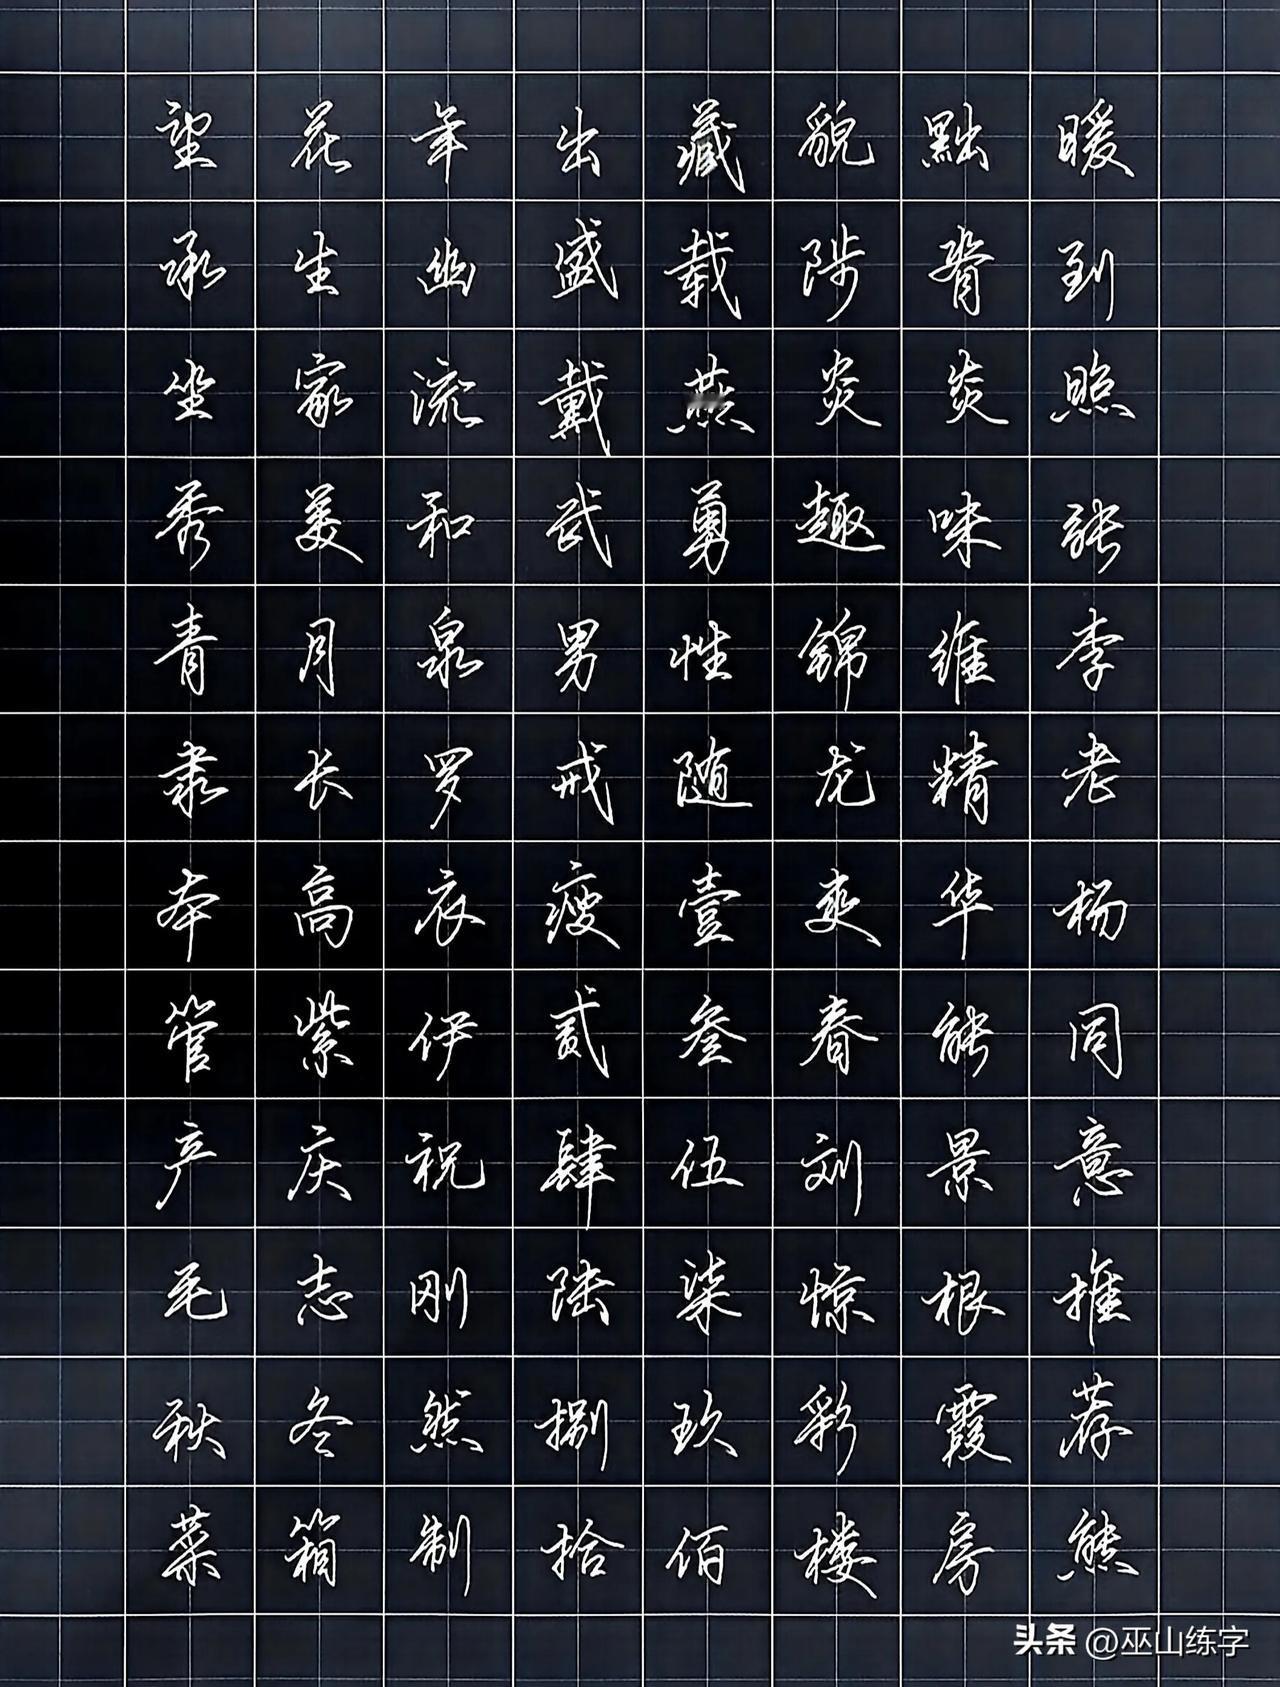 望花年出藏貌黜暖
承生幽盛载陟脊到
坐家流戴燕炎炎照
秀美和武勇趣味张
青月泉男性锦维李
隶长罗戒随龙精老
本高衣瘦壹爽华杨
管紫伊贰叁春能同
产庆祝肆伍刘景意
毛志刚陆柒惊根推
秋冬然捌玖彩霞荐
菜箱制拾佰楼房熊
头条 @巫山练字